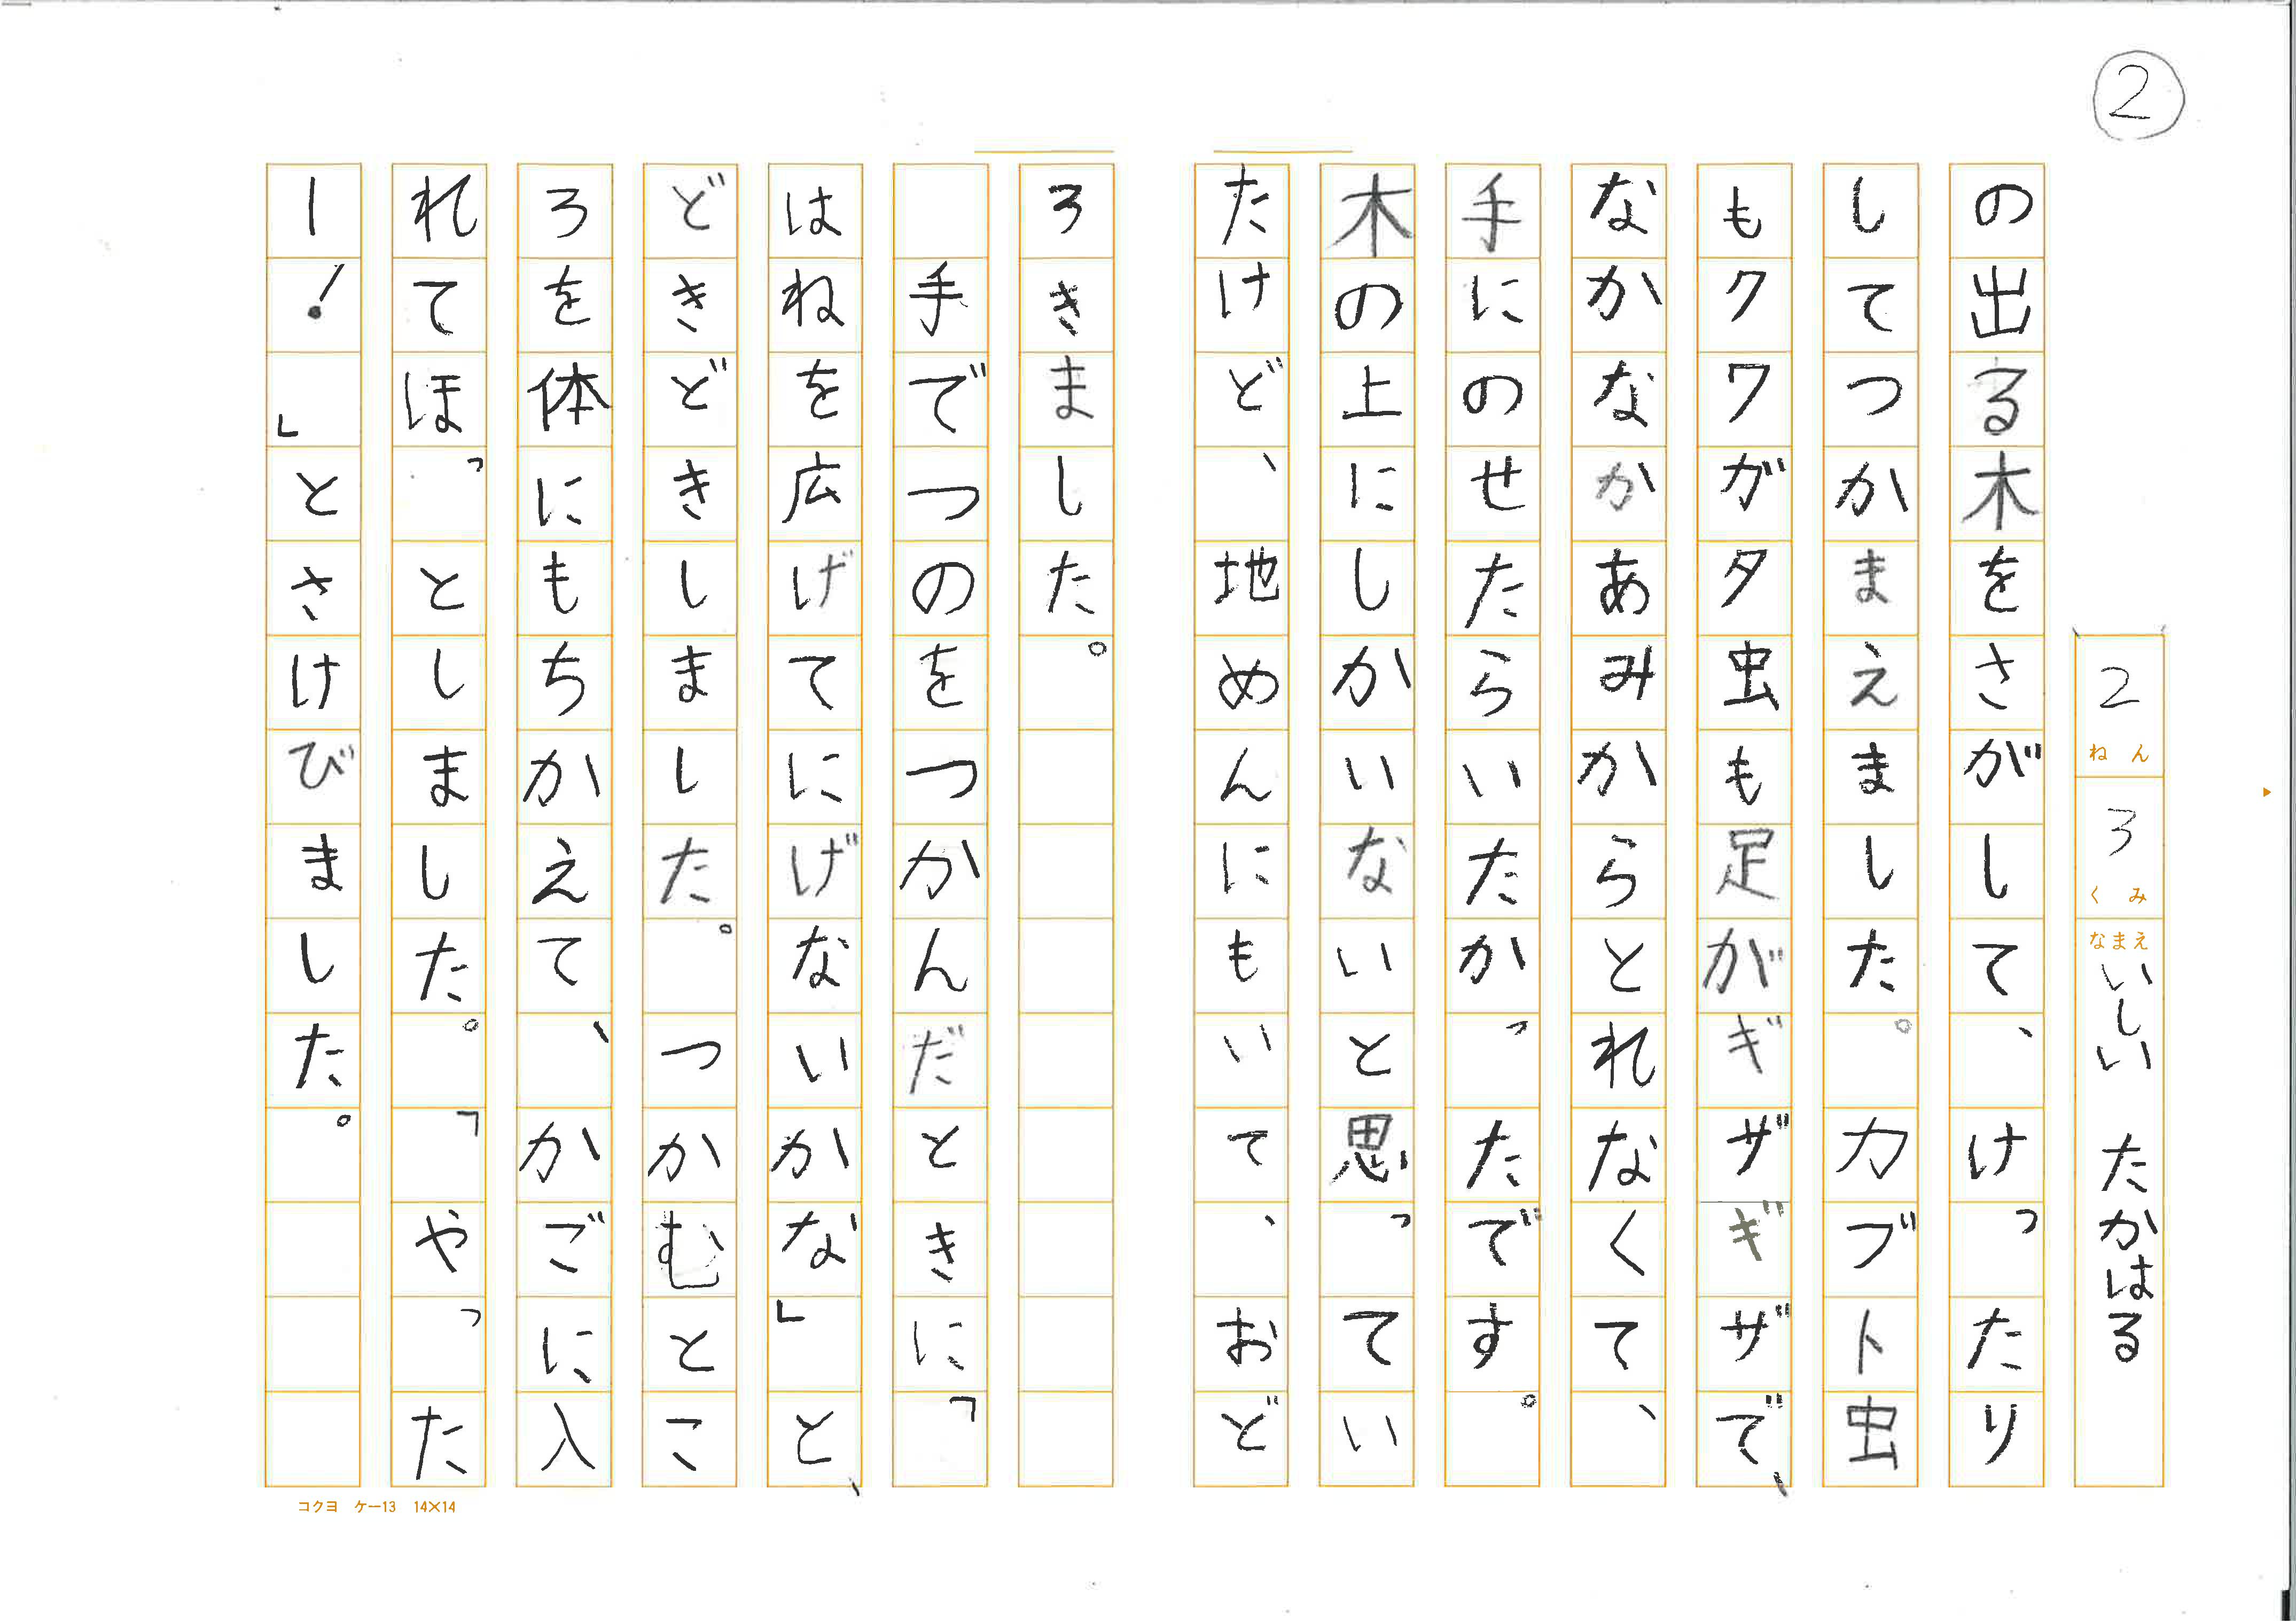 ②
2ねん3くみ なまえ いしい たかはる
の出る木をさがして、けったり
してつかまえました。カブト虫
もクワガタ虫も足がギザギザで、
なかなかあみからとれなくて、
手にのせたらいたかったです。
木の上にしかいないと思ってい
たけど、地めんにもいて、おど
ろきました。
　手でつのをつかんだときに「
はねを広げてにげないかな」と、
どきどきしました。つかむとこ
ろを体にもちかえて、かごに入
れてほっとしました。「やった
ー！」とさけびました。
コクヨ ケー13 14×14